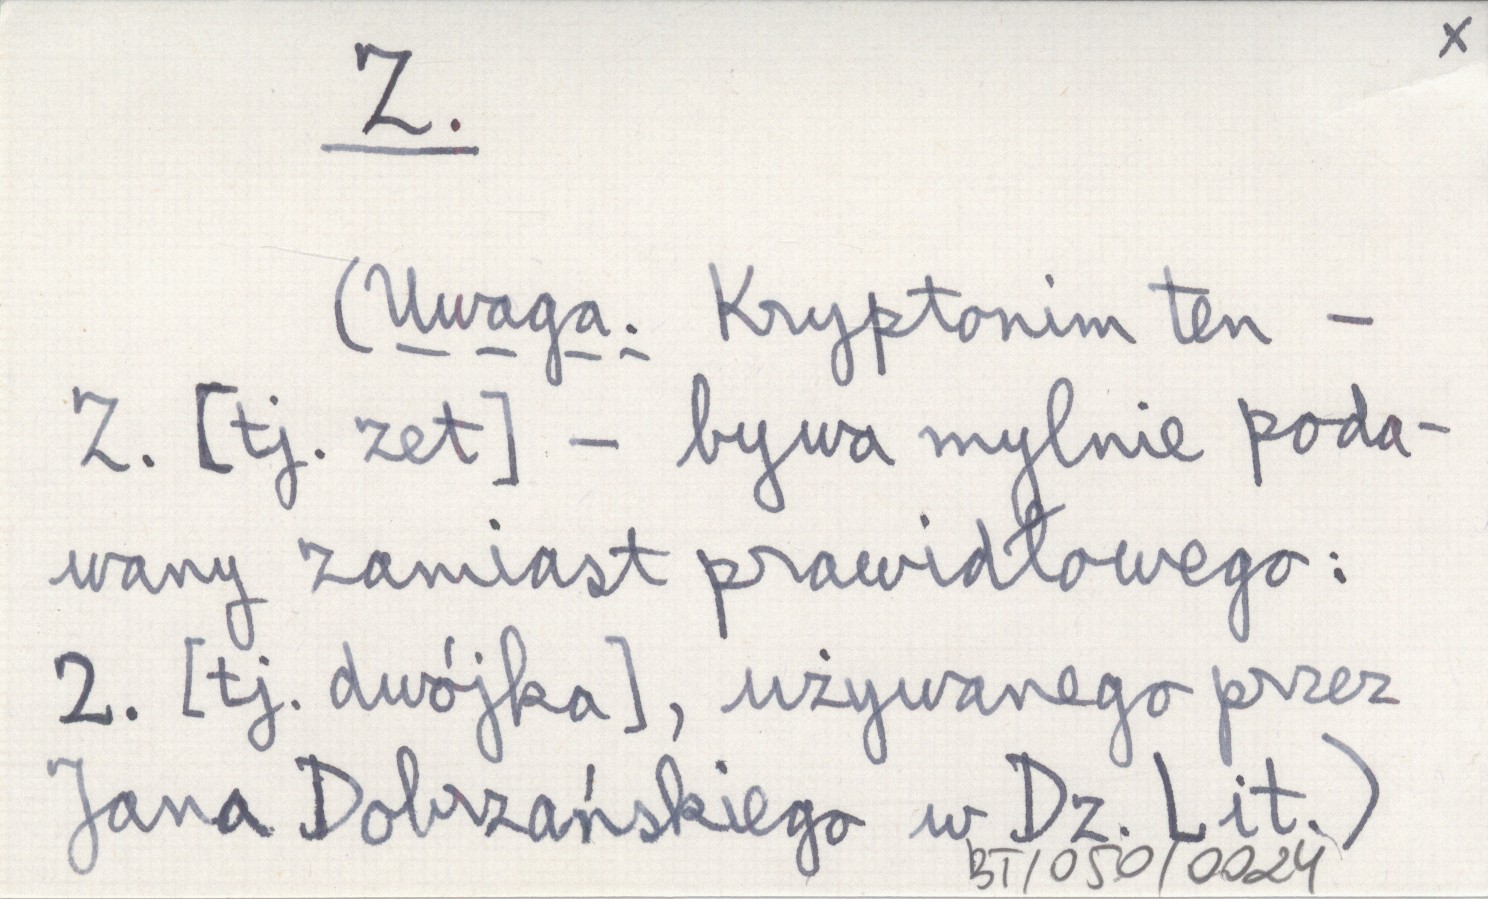 x
Z.
(Uwaga. Kryptonim ten –
Z. [tj. zet] – bywa mylnie poda-
wany zamiast prawidłowego:
2. [tj. dwójka], używanego przez
Jana Dobrzańskiego w Dz. Lit.)
BT/050/0024